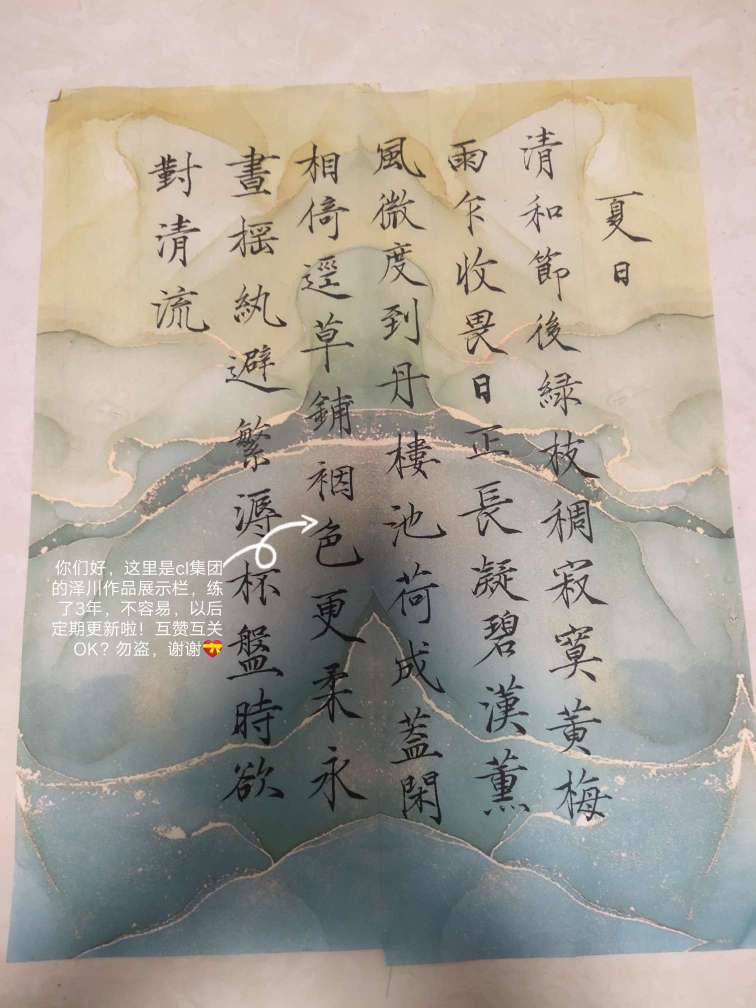 夏日
清和節後緑枝稠寂寞黄梅
雨乍收畏日正長凝碧漢薰
風微度到丹樓池荷成蓋閑
相倚逕草鋪裀色更柔永
晝搖紈避繁溽杯盤時欲
對清流
你们好，这里是cl集团
的泽川作品展示栏，练
了3年，不容易，以后
定期更新啦！互赞互关
OK？勿盗，谢谢💝